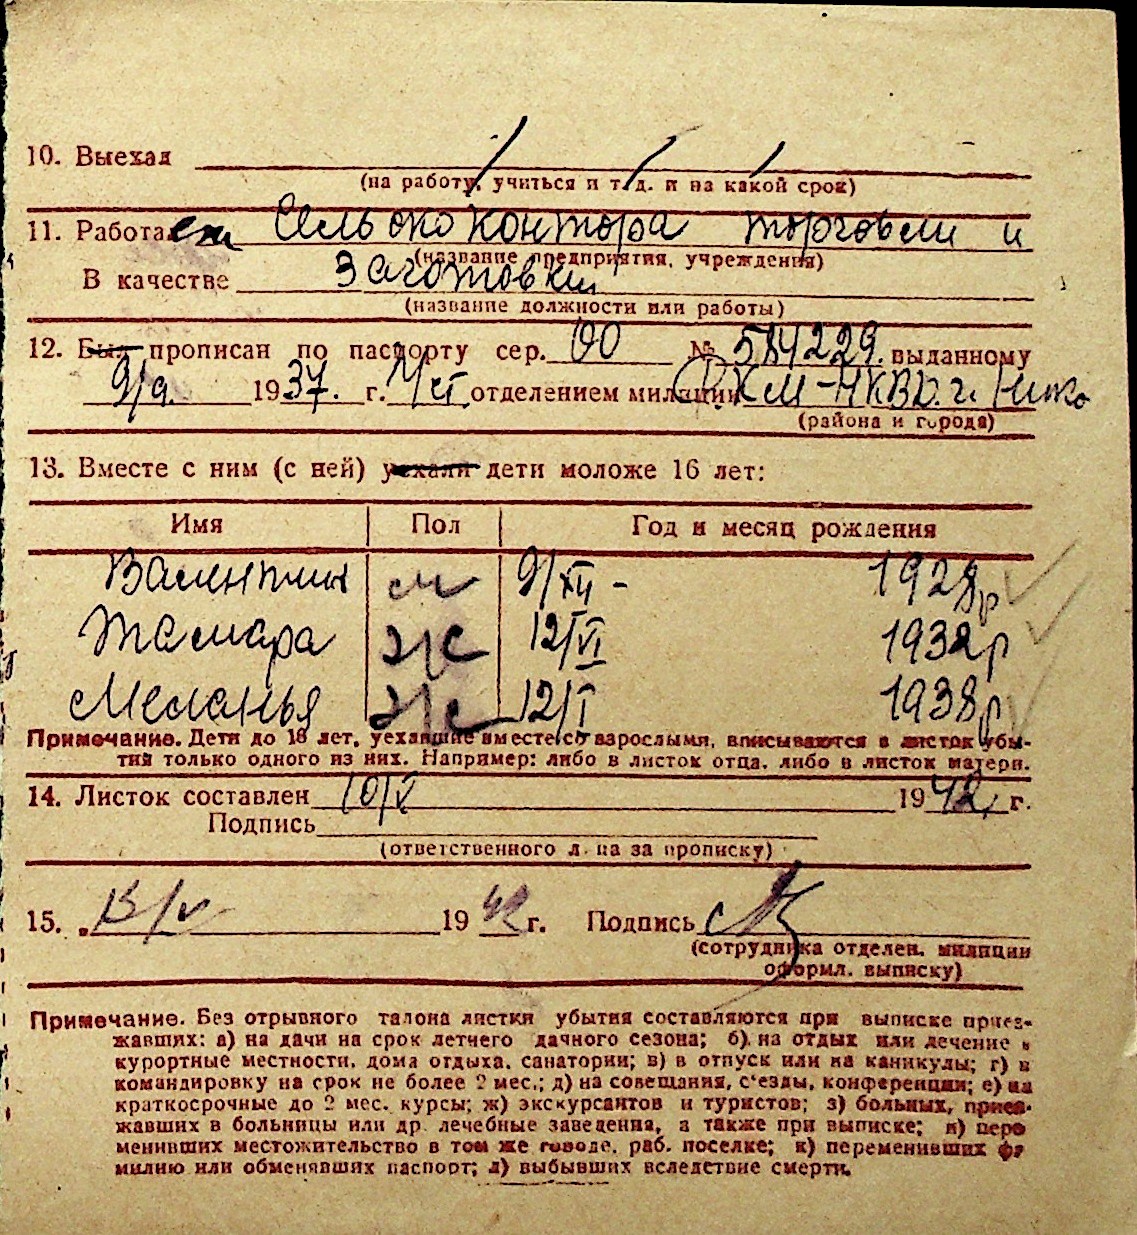 10. Выехал / / /
(на работу, учиться и т. д. и на какой срок)
11. Работа Сельско контора торговли и
(название предприятия, учреждения)
В качестве Заготовки
(название должности или работы)
12. Был прописан по паспорту сер. № 584229. выданному
9/9. 1937. г. отделением милиции РКМ-НКВД. г.
(района и города)
13. Вместе с ним (с ней) уехали дети моложе 16 лет:
Имя Пол Год и месяц рождения
Валентин м 9/XII - 1928р
Тамара ж 12/VI 1932р
Меланья ж 12/I 1938р
Примечание. Дети до 18 лет, уехавшие вместе со взрослыми, вписываются в листок убы-
тия только одного из них. Например: либо в листок отца, либо в листок матери.
14. Листок составлен 10/V 1942, г.
Подпись
(ответственного л. па за прописку)
15. 13/V 1942 г. Подпись
(сотрудника отделен. милиции
оформл. выписку)
Примечание. Без отрывного талона листки убытия составляются при выписке приез-
жавших: а) на дачи на срок летнего дачного сезона; б) на отдых или лечение в
курортные местности, дома отдыха, санатории; в) в отпуск или на каникулы; г) в
командировку на срок не более 2 мес.; д) на совещания, с'езды, конференции; е) на
краткосрочные до 2 мес. курсы; ж) экскурсантов и туристов; з) больных, приез-
жавших в больницы или др. лечебные заведения, а также при выписке; и) пере
менивших местожительство в том же городе, раб. поселке; к) переменивших фа
милию или обменявших паспорт; л) выбывших вследствие смерти.